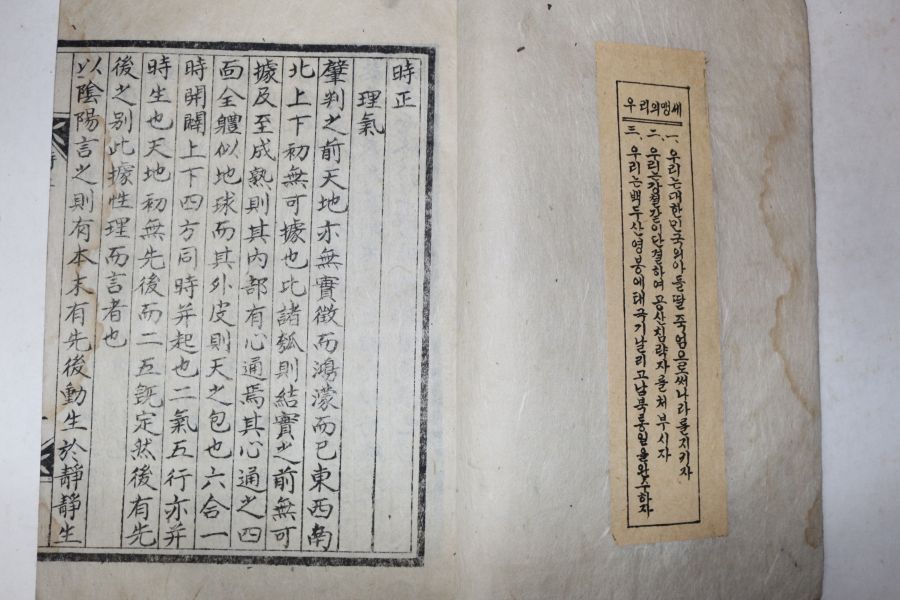 우리의맹세
一、우리는대한민국의아들딸 죽엄으로써나라를지키자
二、우리는강철같이단결하여 공산침략자를처부시자
三、우리는백두산영봉에태극기날리고남북통일을완수하자
時正
理氣
肇判之前天地亦無實徵而鴻濛而已東西南
北上下初無可據也比諸瓠則結實之前無可
據及至成熟則其內部有心通焉其心通之四
面全體似地球而其外皮則天之包也六合一
時開闢上下四方同時并起也二氣五行亦并
時生也天地初無先後而二五旣定然後有先
後之别此據性理而言者也
以陰陽言之則有本末有先後動生於靜靜生